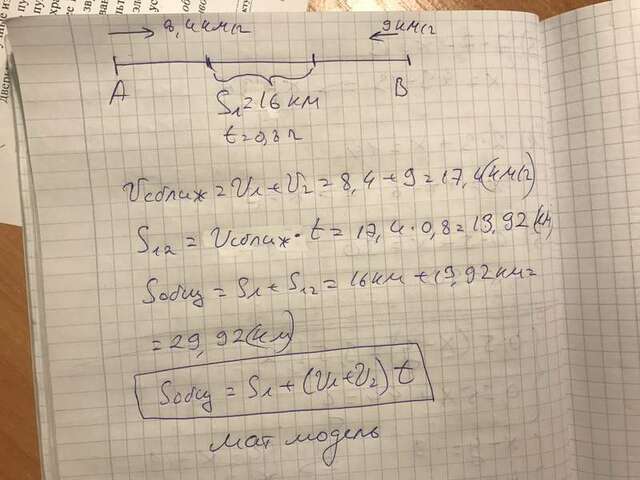 8,4 км/г 9 км/г
A B
S₁=16 км
t=0,8 г
Vсближ = V₁ + V₂ = 8,4 + 9 = 17,4 (км/г)
S₁₂ = Vсближ · t = 17,4 · 0,8 = 13,92 (км)
Sобщ = S₁ + S₁₂ = 16 км + 13,92 км =
= 29,92 (км)
Sобщ = S₁ + (V₁+V₂) t
мат модель